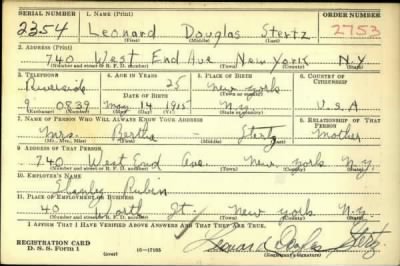 SERIAL NUMBER 1. NAME (Print) ORDER NUMBER
2354 Leonard Douglas Stertz 2753
(First) (Middle) (Last)
2. ADDRESS (Print)
740 West End Ave New York N.Y.
(Number and street or R. F. D. number) (Town) (County) (State)
3. TELEPHONE 4. AGE IN YEARS 5. PLACE OF BIRTH 6. COUNTRY OF CITIZENSHIP
Riverside 25 New York
DATE OF BIRTH (Town or county)
9 0839 May 14 1915 N.Y. U.S.A
(Exchange) (Number) (Mo.) (Day) (Yr.) (State or country)
7. NAME OF PERSON WHO WILL ALWAYS KNOW YOUR ADDRESS 8. RELATIONSHIP OF THAT PERSON
Mrs. Bertha Stertz Mother
(Mr., Mrs., Miss) (First) (Middle) (Last)
9. ADDRESS OF THAT PERSON
740 West End Ave. New York N.Y.
(Number and street or R. F. D. number) (Town) (County) (State)
10. EMPLOYER'S NAME
Stanley Rubin
11. PLACE OF EMPLOYMENT OR BUSINESS
40 Worth St. New York N.Y.
(Number and street or R. F. D. number) (Town) (County) (State)
I AFFIRM THAT I HAVE VERIFIED ABOVE ANSWERS AND THAT THEY ARE TRUE.
REGISTRATION CARD
D. S. S. Form 1 (over) 16—17105 Leonard Douglas Stertz
(Registrant's signature)